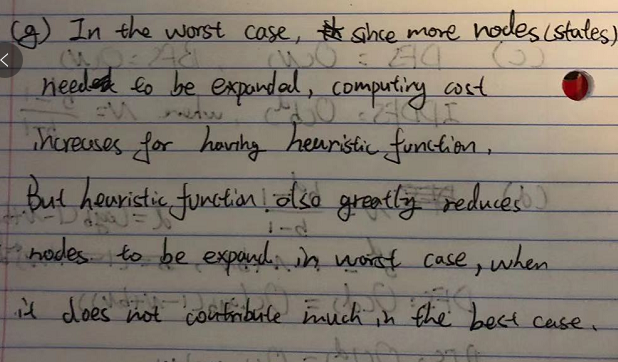 (g) In the worst case, since more nodes (states)
need to be expanded, computing cost
increases for having heuristic function,
But heuristic function also greatly reduces
nodes to be expand in worst case, when
it does not contribute much in the best case.